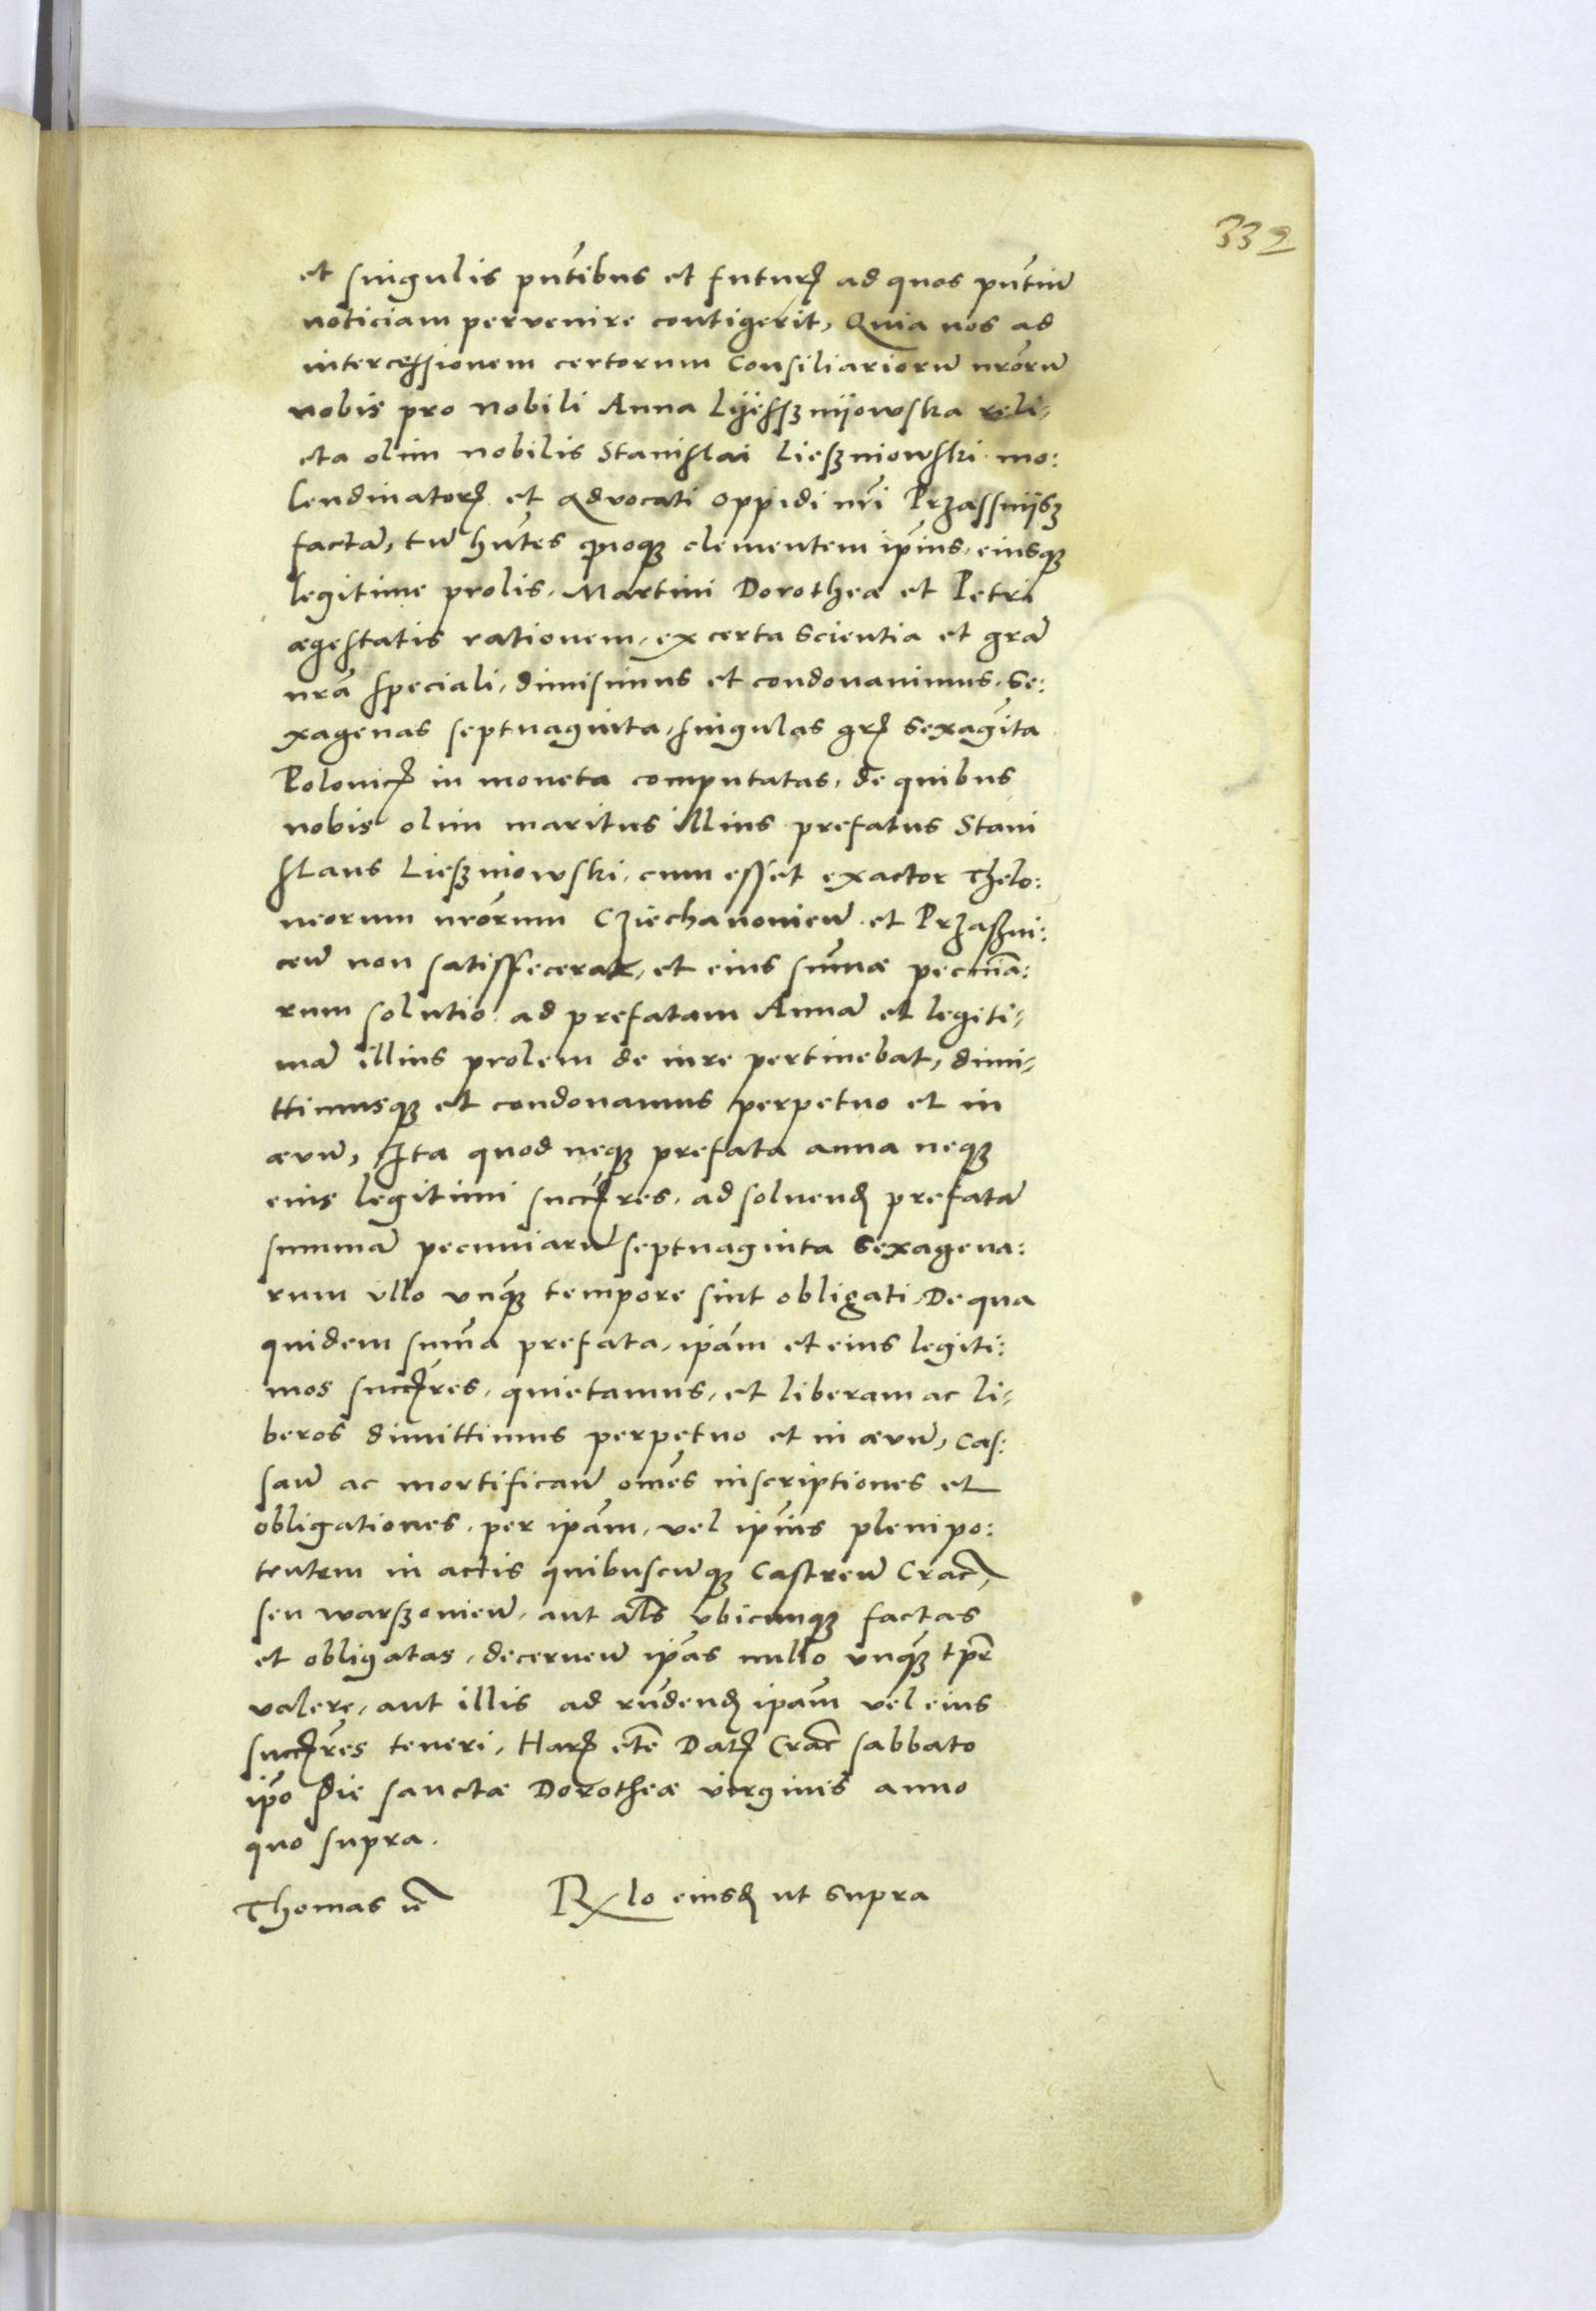 339
et singulis pñtibus et futurꝭ ad quos pñtiũ
noticiam pervenire contigerit, Quia nos ad
intercessionem certorum Consiliariorũ nrõrũ
nobis pro nobili Anna Lyessznijowska reli-
cta olim nobilis Stanislai Liesznowski mo:
lendinatorꝭ et advocati oppidi nrĩ Przassnijsz
factã, tũ hñtes quoqꝫ clementem ipĩus, eiusqꝫ
legitime prolis, Martini Dorotheæ et Petri
ægestatis rationem, ex certa scientia et grã
nrã speciali, dimisimus et condonavimus, Se:
xagenas septuaginta, singulas grꝭ sexagĩta
Polonicꝭ in moneta computatas, de quibus
nobis olim maritus illius prefatus Stani
slaus Liesznowski, cum esset exactor Thelo:
neorum nrõrum Cziechanonieũ et Przaszni:
ceũ non satisfecerat, et eius sum̃æ pecuniã:
rum solutio ad prefatam Annã et legiti-
mã illius prolem de iure pertinebat, dimi-
ttimusqꝫ et condonamus perpetuo et in
ævũ, Ita quod neqꝫ prefata anna neqꝫ
eius legitimi succꝭres, ad solvendꝭ prefatã
summã pecuniarũ septuaginta Sexagena:
rum ullo unqꝫ tempore sint obligati, De qua
quidem sum̃a prefata, ipãm et eius legiti:
mos succꝭres, quietamus, et liberam ac li-
beros dimittimus perpetuo et in ævũ, Cas:
sañ ac mortificañ om̃es inscriptiones et
obligationes, per ipãm, vel ipĩus plenipo:
tentem in actis quibuscũqꝫ Castreñ Crac̃,
seu warszonieñ, aut als̃ ubicunqꝫ factas
et obligatas, decerneñ ipãs nullo unqꝫ tpr̃e
valere, aut illis ad rñdendꝭ ipãm vel eius
succꝭres teneri, Harꝭ etc̃ Datꝭ Crac̃ sabbato
ipõ die sanctæ Dorotheæ virginis anno
quo supra.
Thomas ũ Rlo eiusdꝭ ut supra